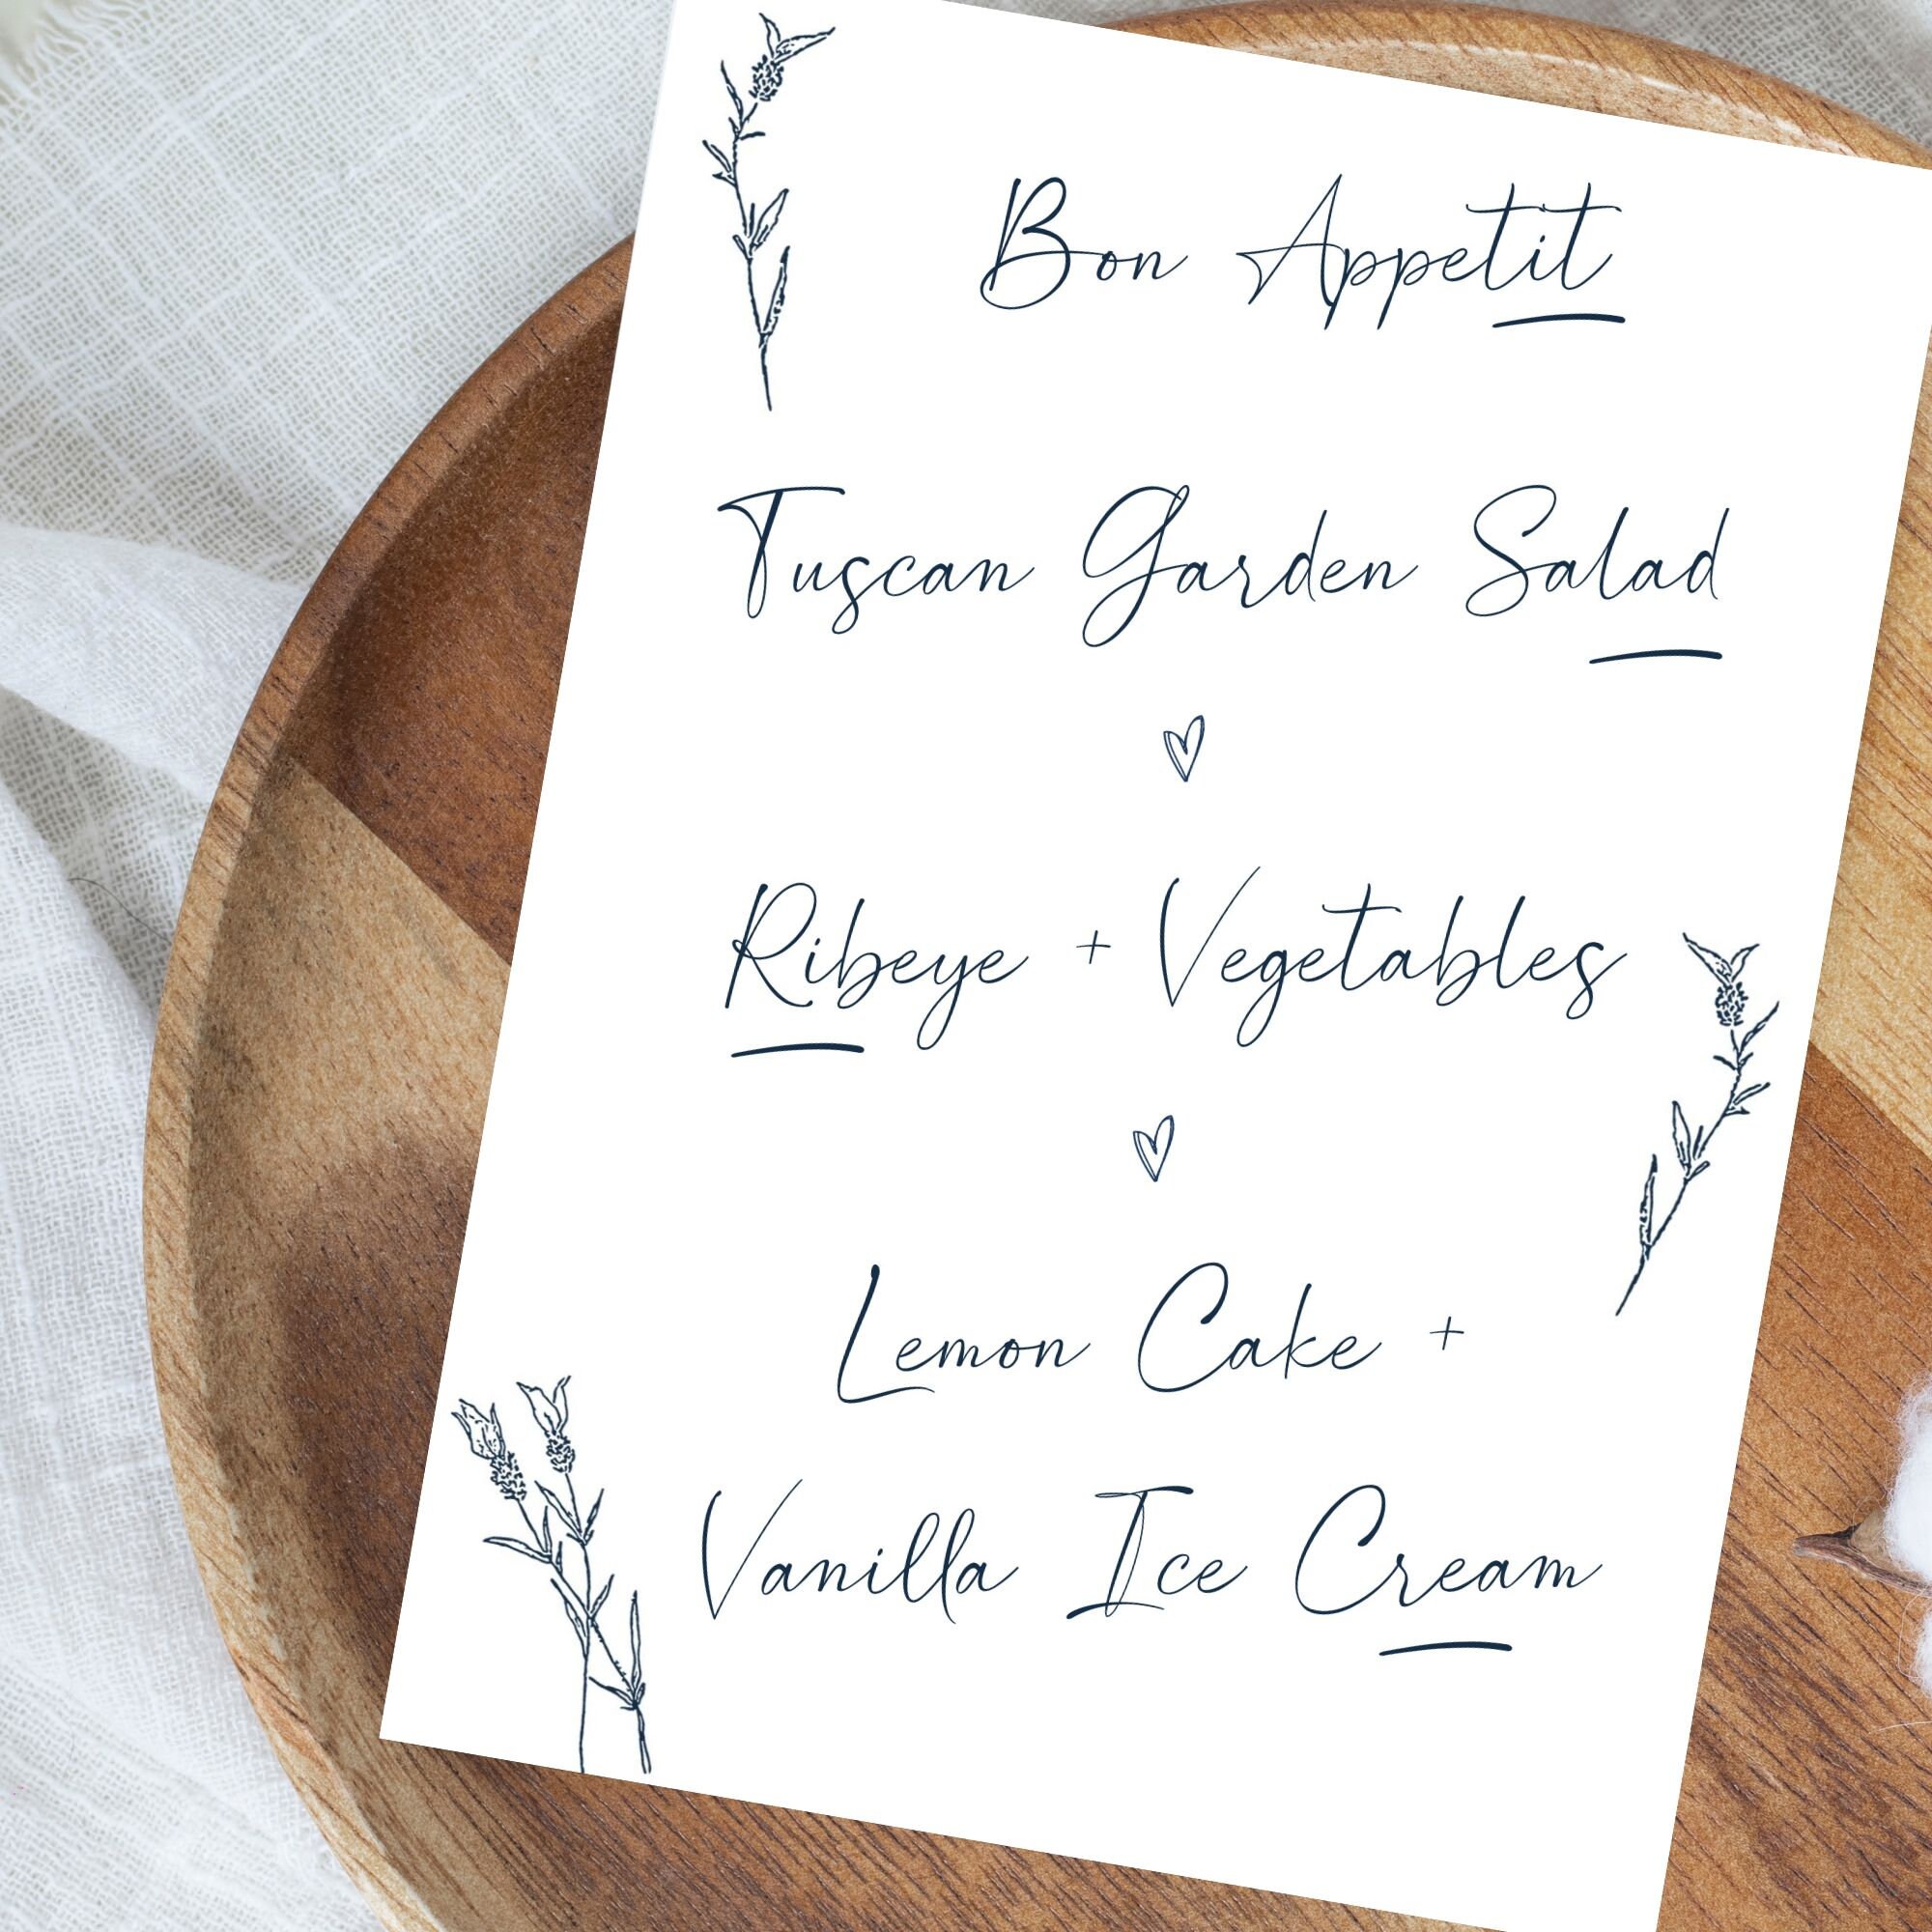 Bon Appetit
Tuscan Garden Salad
Ribeye + Vegetables
Lemon Cake +
Vanilla Ice Cream